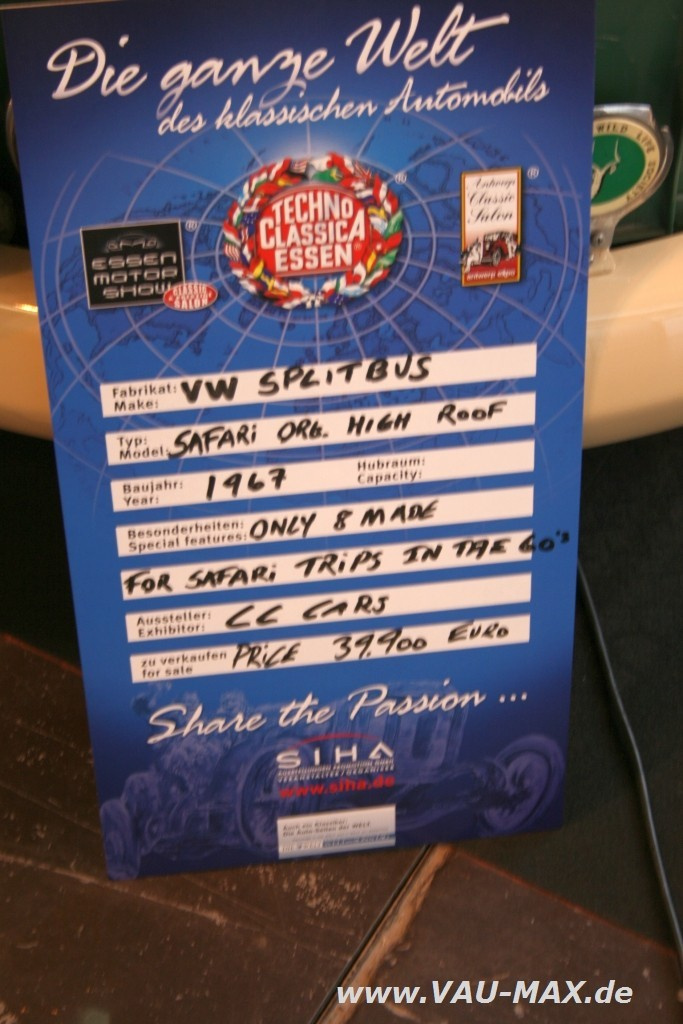 Die ganze Welt
des klassischen Automobils
WILD LIFE SOCIETY
TECHNO
CLASSICA
ESSEN
®
Antwerp
Classic
Salon
antwerp expo
®
ESSEN
MOTOR
SHOW
®
CLASSIC
SALON
Fabrikat: VW SPLITBUS
Make:
Typ: SAFARI ORG. HIGH ROOF
Model:
Baujahr: 1967 Hubraum:
Year: Capacity:
Besonderheiten: ONLY 8 MADE
Special features:
FOR SAFARI TRIPS IN THE 60's
Aussteller: CC CARS
Exhibitor:
zu verkaufen PRICE 39.900 EURO
for sale
Share the Passion ...
SIHA
www.siha.de
www.VAU-MAX.de